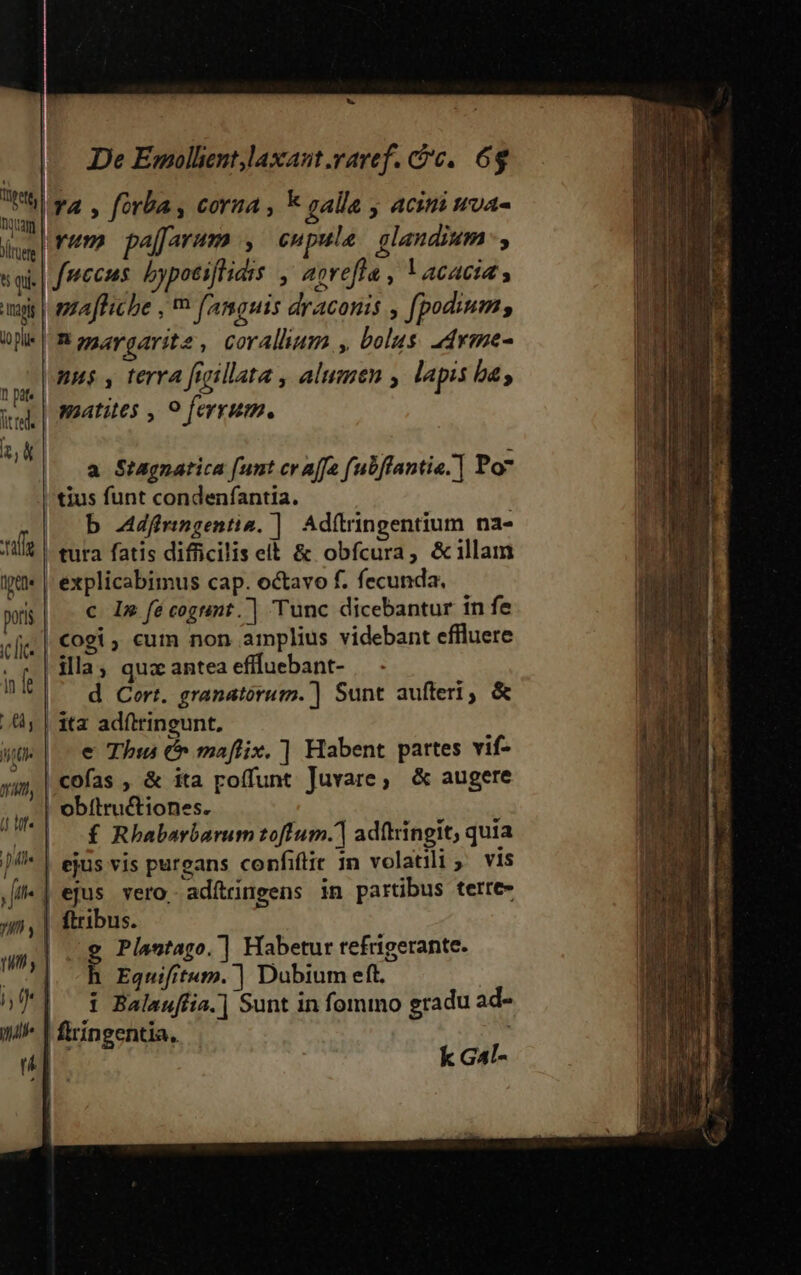 De Emollient,laxant.raref. &c. 65
ra , ſorba , corna , k galla , acini uva-
rum paſſarum , cupulæ glandium ,
ſuccus hypociſtidis , agreſta , l acacia ,
maſtiche , m ſanguis draconis , ſpodium ,
n margaritæ , corallium , bolus Arme-
nus , terra ſigillata , alumen , lapis hæ,
matites , o ferrum.
a Stagnatica ſunt craſſæ ſubſtantiæ.] Po-
tius ſunt condenſantia.
b Adſtringentia. ] Adſtringentium na-
tura ſatis difficilis eſt & obſcura, & illam
explicabimus cap. octavo ſ. ſecunda.
c In ſe cogunt. ] Tunc dicebantur in ſe
cogi, cum non amplius videbant effluere
illa, quæ antea effluebant-
d Cort. granatorum. ] Sunt auſteri, &
ita adſtringunt.
e Thus & maſtix. ] Habent partes viſ-
coſas , & ita poſſunt Juvare, & augere
obſtructiones.
f Rhabarbarum toſtum.] adſtringit, quia
ejus vis purgans conſiſtit in volatili , vis
ejus vero adſtringens in partibus terre-
ſtribus.
g Plantago. ] Habetur refrigerante.
h Equiſitum. ] Dubium eſt.
i Balauſtia.] Sunt in ſommo gradu ad-
ſtringentia.
k Gal-